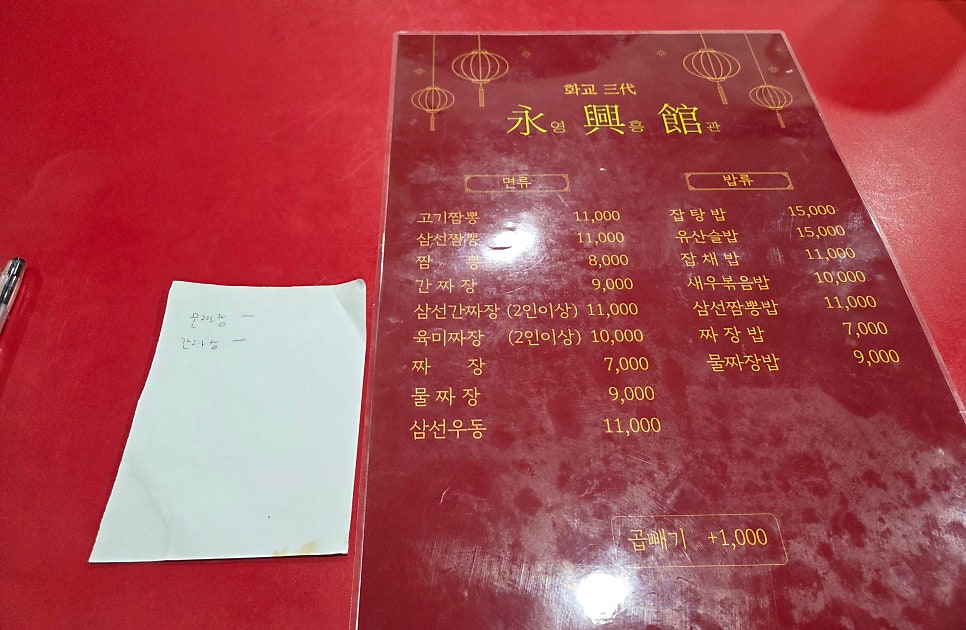 화교 三代
永영 興흥 館관
면류
고기짬뽕 11,000
삼선짬뽕 11,000
짬 뽕 8,000
간 짜 장 9,000
삼선간짜장 (2인이상) 11,000
육미짜장 (2인이상) 10,000
짜 장 7,000
물 짜 장 9,000
삼선우동 11,000
밥류
잡 탕 밥 15,000
유산슬밥 15,000
잡 채 밥 11,000
새우볶음밥 10,000
삼선짬뽕밥 11,000
짜 장 밥 7,000
물짜장밥 9,000
곱빼기 +1,000
물짜장 一
간짜장 一